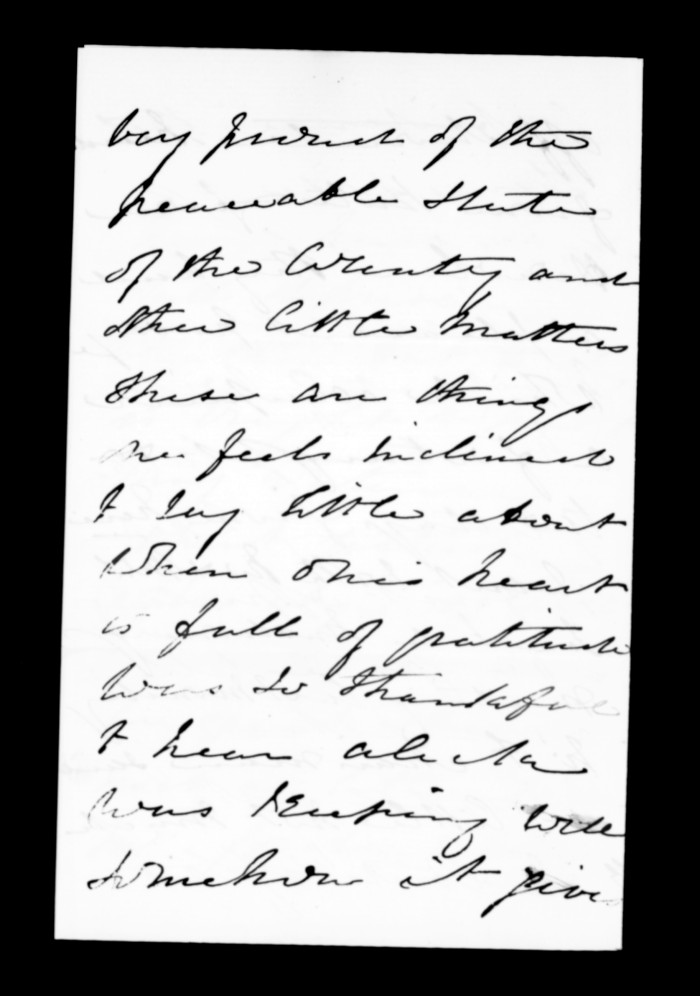 very proud of the
peaceable State
of the Country and
other little matters
these are things
one feels inclined
to say little about
when ones heart
is full of gratitude
was so thankful
to hear
was keeping well
somehow it gives